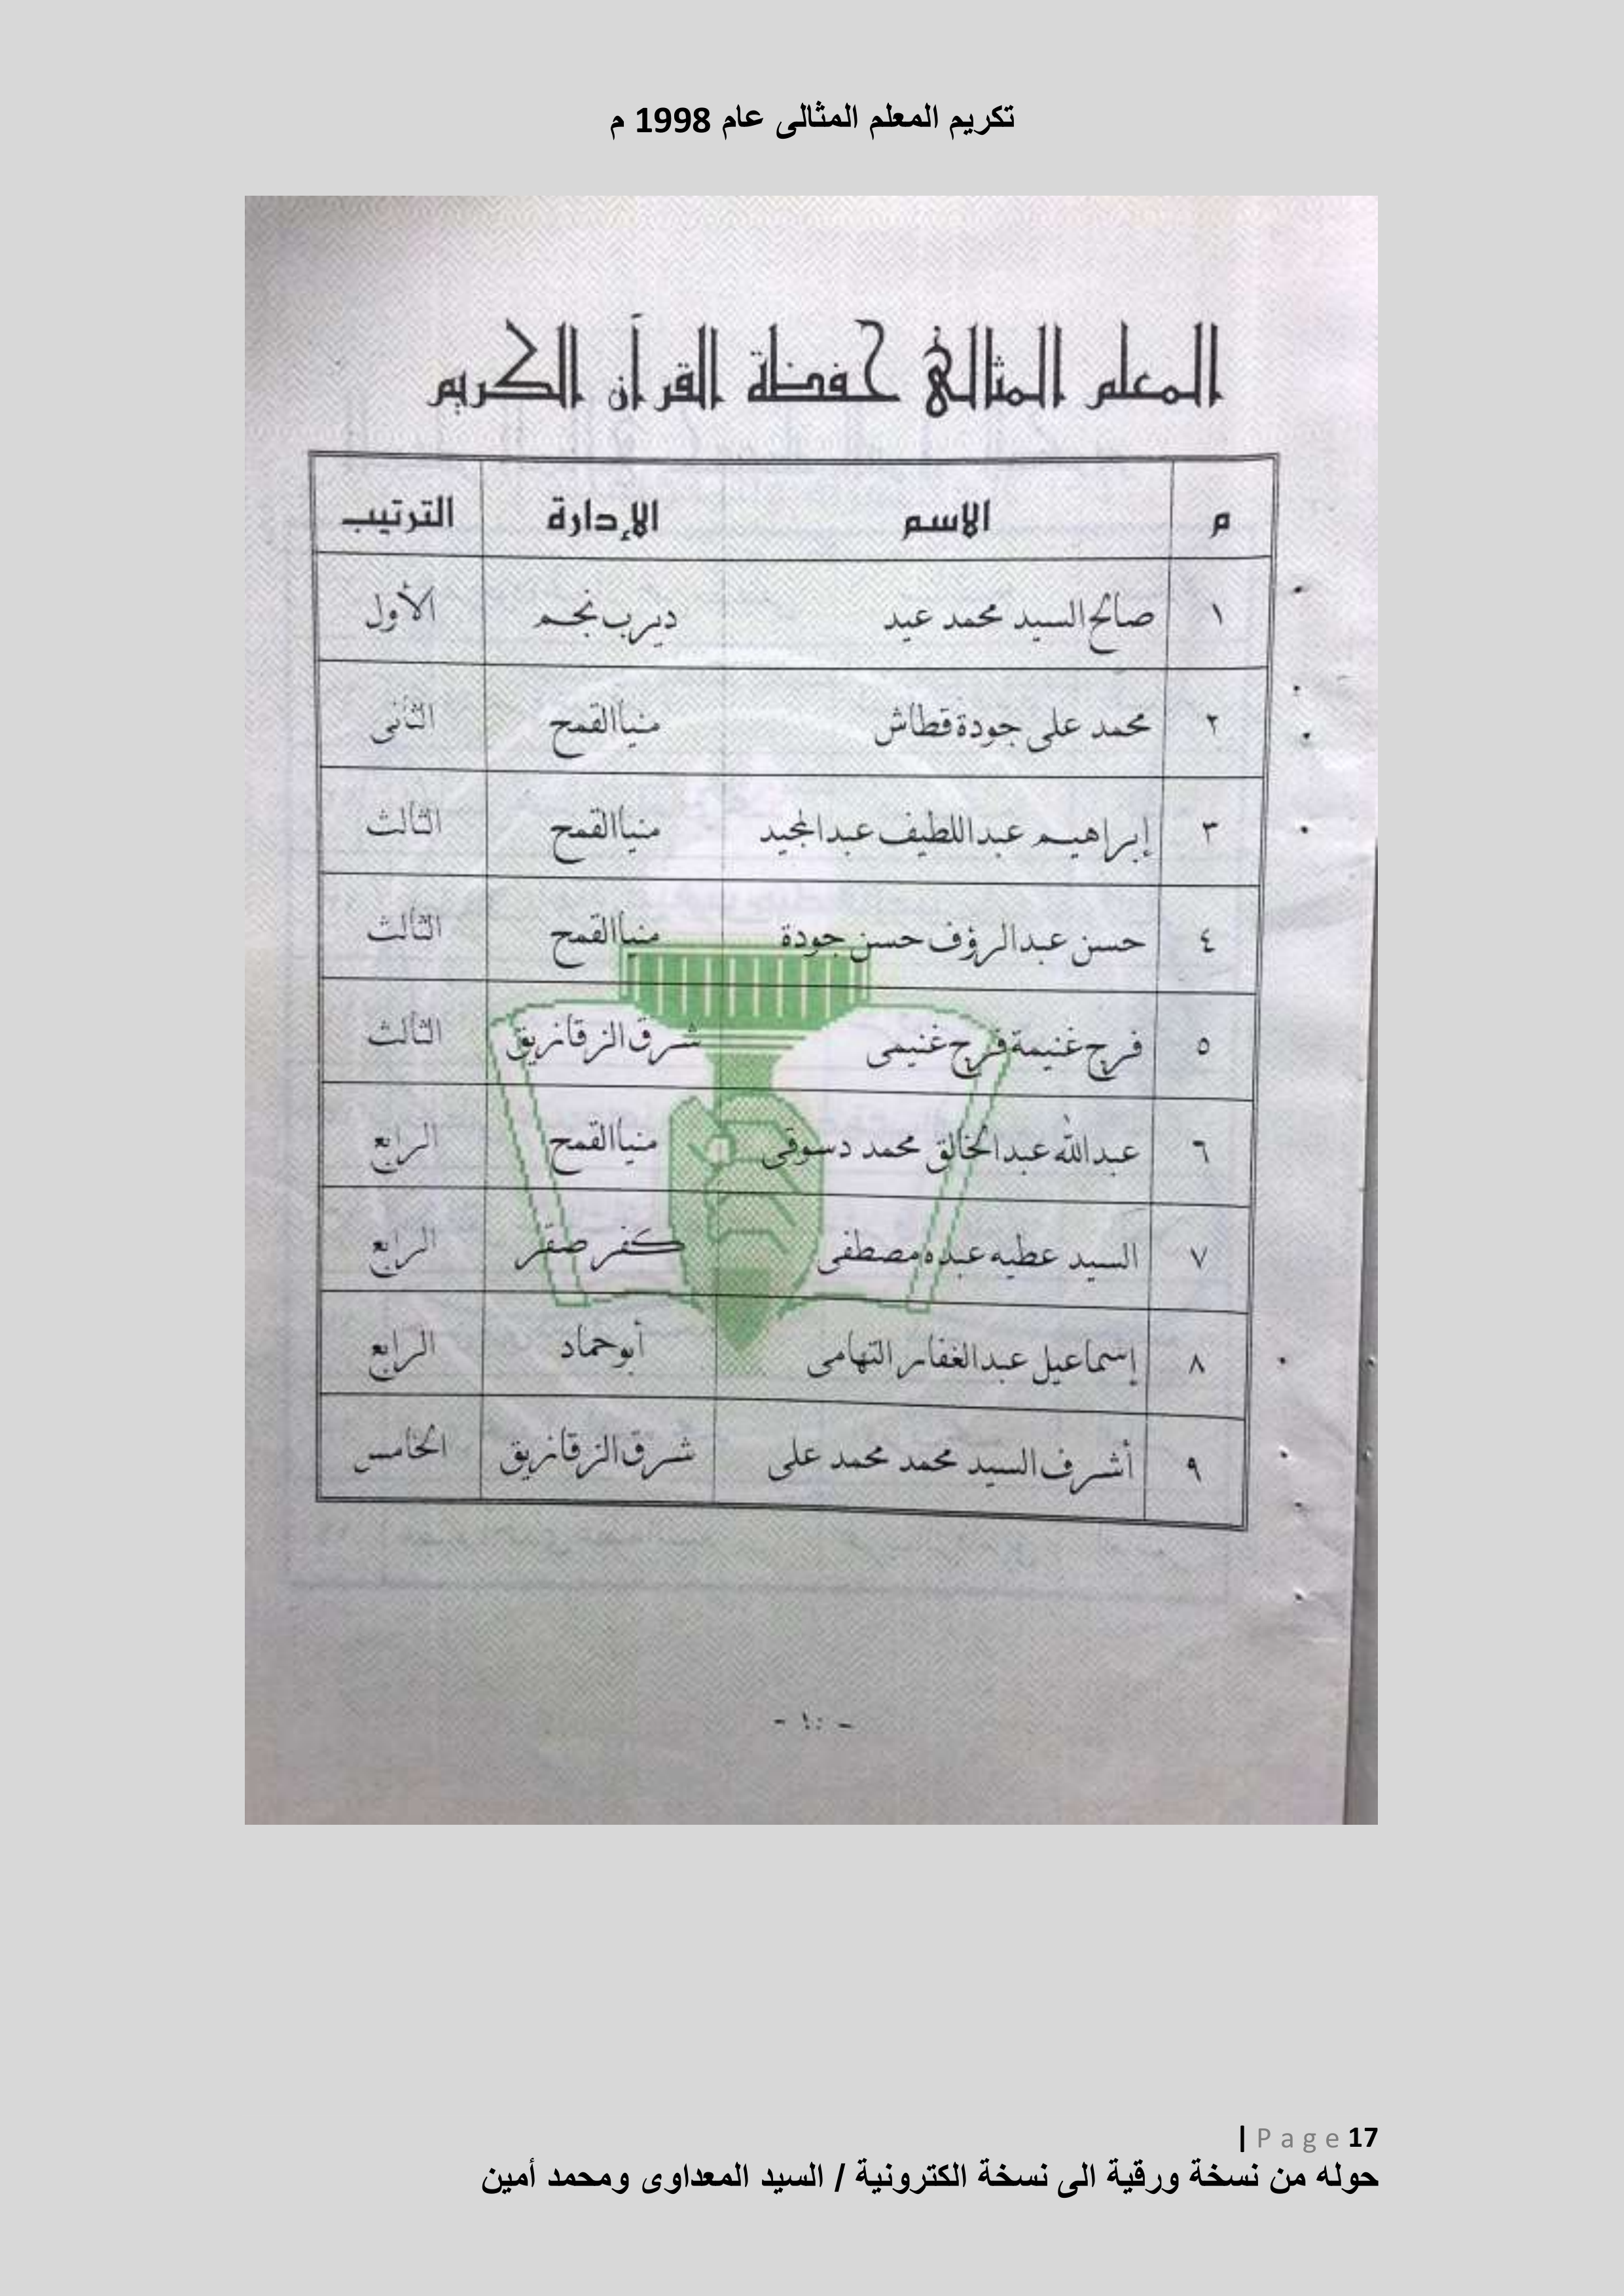 تكريم المعلم المثالى عام 1998 م
المعلم المثالى حفظة القرآن الكريم
م الاسم الإدارة الترتيب
١ صالح السيد محمد عيد ديرب نجم الأول
٢ محمد على جودة قطاش منيا القمح الثانى
٣ إبراهيم عبد اللطيف عبد المجيد منيا القمح الثالث
٤ حسن عبد الرؤف حسن جودة منيا القمح الثالث
٥ فرج غنيمة فرج غنيمى شرق الزقازيق الثالث
٦ عبد الله عبد الخالق محمد دسوقى منيا القمح الرابع
٧ السيد عطيه عبده مصطفى كفر صقر الرابع
٨ إسماعيل عبد الغفار التهامى أبو حماد الرابع
٩ أشرف السيد محمد محمد على شرق الزقازيق الخامس
| Page 17
حوله من نسخة ورقية الى نسخة الكترونية / السيد المعداوى ومحمد أمين